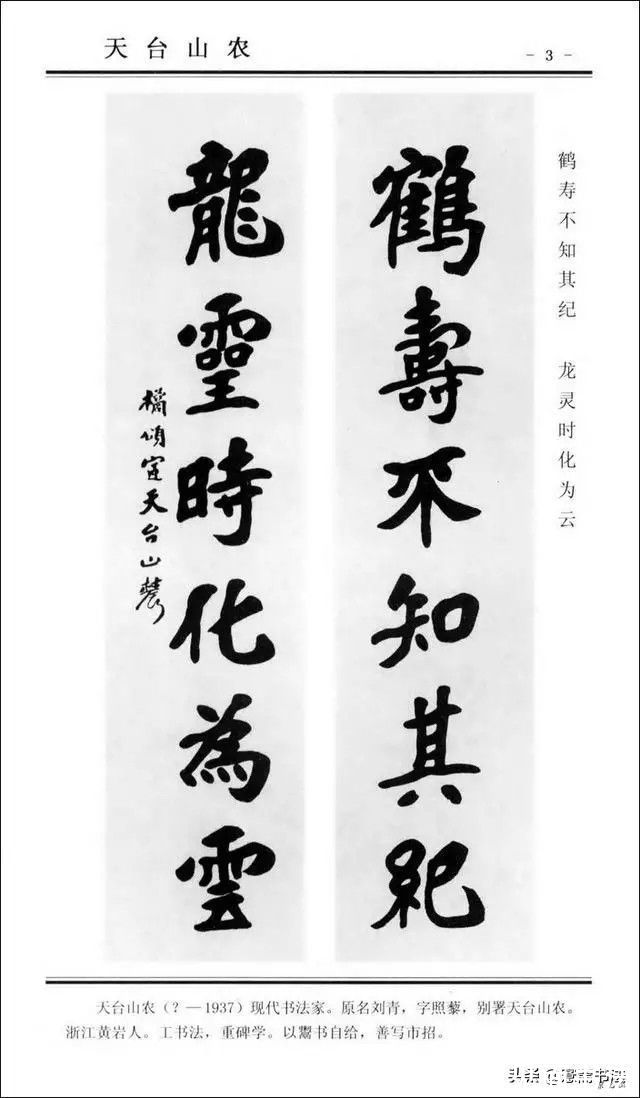 天台山农
- 3 -
鹤寿不知其纪 龙灵时化为云
鶴壽不知其紀
龍靈時化為雲
橘頌室天台山農
天台山农(?—1937)现代书法家。原名刘青,字照藜,别署天台山农。
浙江黄岩人。工书法,重碑学。以鬻书自给,善写市招。
头条